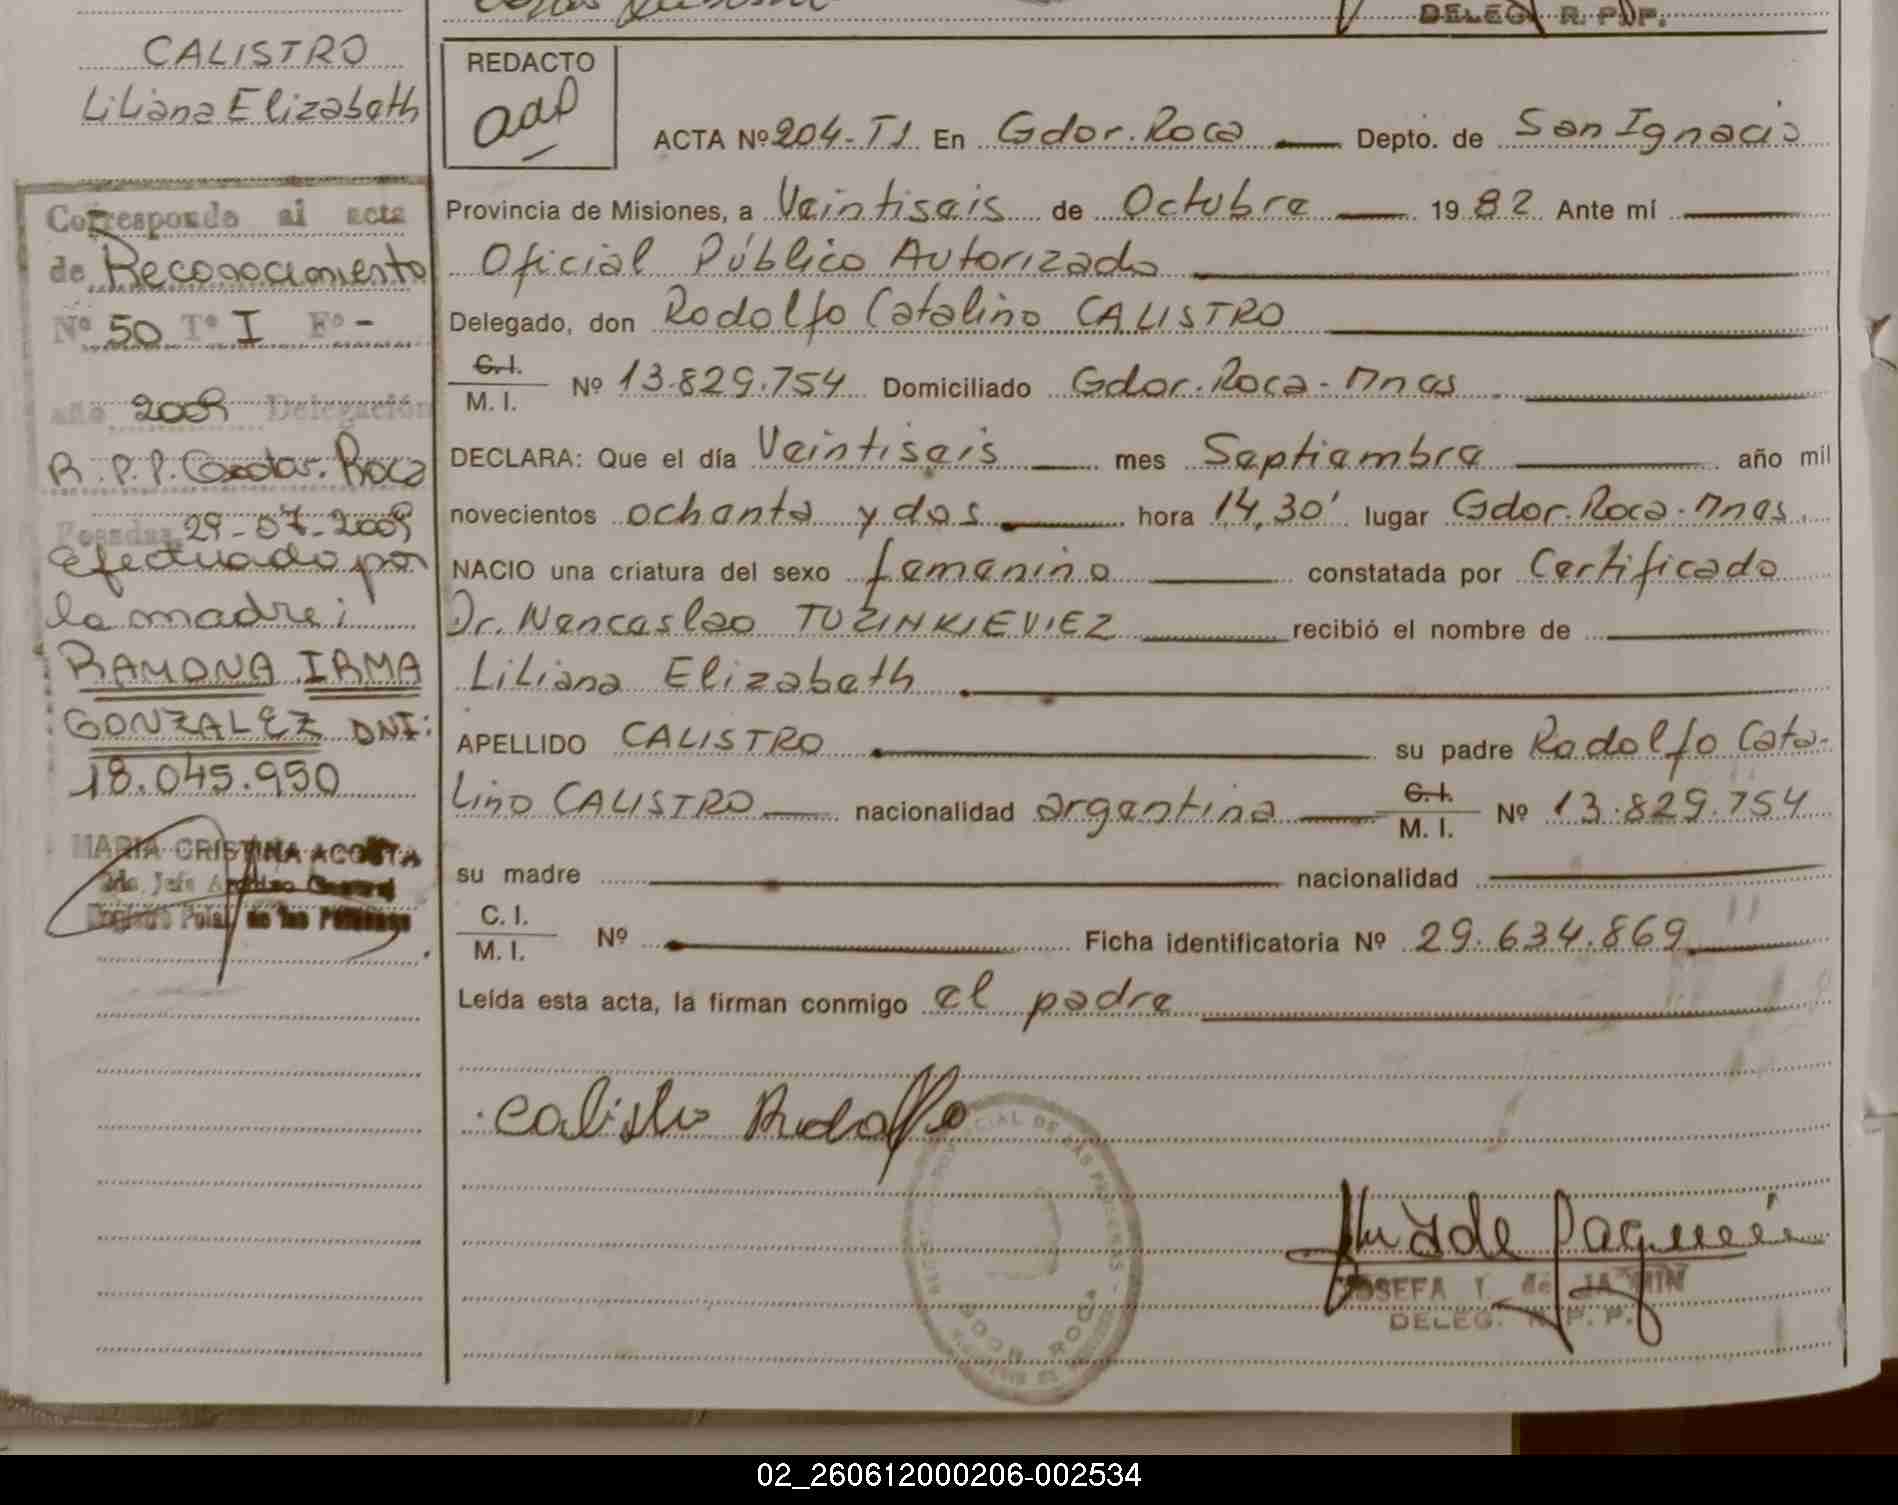 DELEG. R. P. P.
CALISTRO
Liliana Elizabeth
Corresponde al acta
de Reconocimiento
Nº 50 Tº I Fº -
año 2009 Delegación
R.P.P. Gdor. Roca
Posadas, 29-07-2009
efectuado por
la madre:
RAMONA IRMA
GONZALEZ DNI:
18.045.950
MARIA CRISTINA ACOSTA
2do. Jefe Archivo General
de las Personas
REDACTO
ACTA Nº 204-T1 En Gdor. Roca Depto. de San Ignacio
Provincia de Misiones, a Veintiseis de Octubre 1982 Ante mí
Oficial Público Autorizado
Delegado, don Rodolfo Catalino CALISTRO
C.I.
M. I. Nº 13.829.754 Domiciliado Gdor. Roca - Mnas
DECLARA: Que el día Veintiseis mes Septiembre año mil
novecientos ochenta y dos hora 14,30' lugar Gdor. Roca - Mnas.
NACIO una criatura del sexo femenino constatada por Certificado
Dr. Wencaslao TUZINKIEVIEZ recibió el nombre de
Liliana Elizabeth
APELLIDO CALISTRO su padre Rodolfo Cata-
lino CALISTRO nacionalidad argentina C.I. M. I. Nº 13.829.754
su madre nacionalidad
C. I.
M. I. Nº Ficha identificatoria Nº 29.634.869
Leída esta acta, la firman conmigo el padre
Calistro Rodolfo
JOSEFA I. de
DELEG. R. P. P.
GDOR. ROCA
02_260612000206-002534